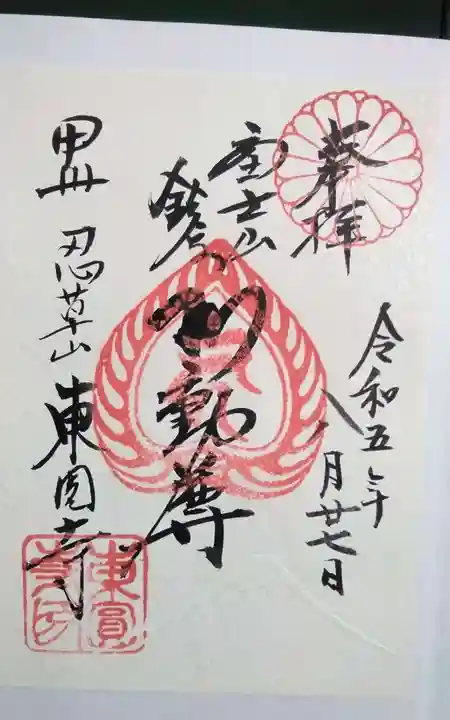 奉拝
令和五年
八月廿七日
富士山
不動尊
甲州 忍草山 東圓寺
東圓
寺印